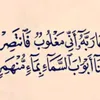 رَبَّهُ أَنِّي مَغْلُوبٌ فَانتَصِرْ
نَا أَبْوَابَ السَّمَاءِ بِمَاءٍ مُنْهَمِرٍ